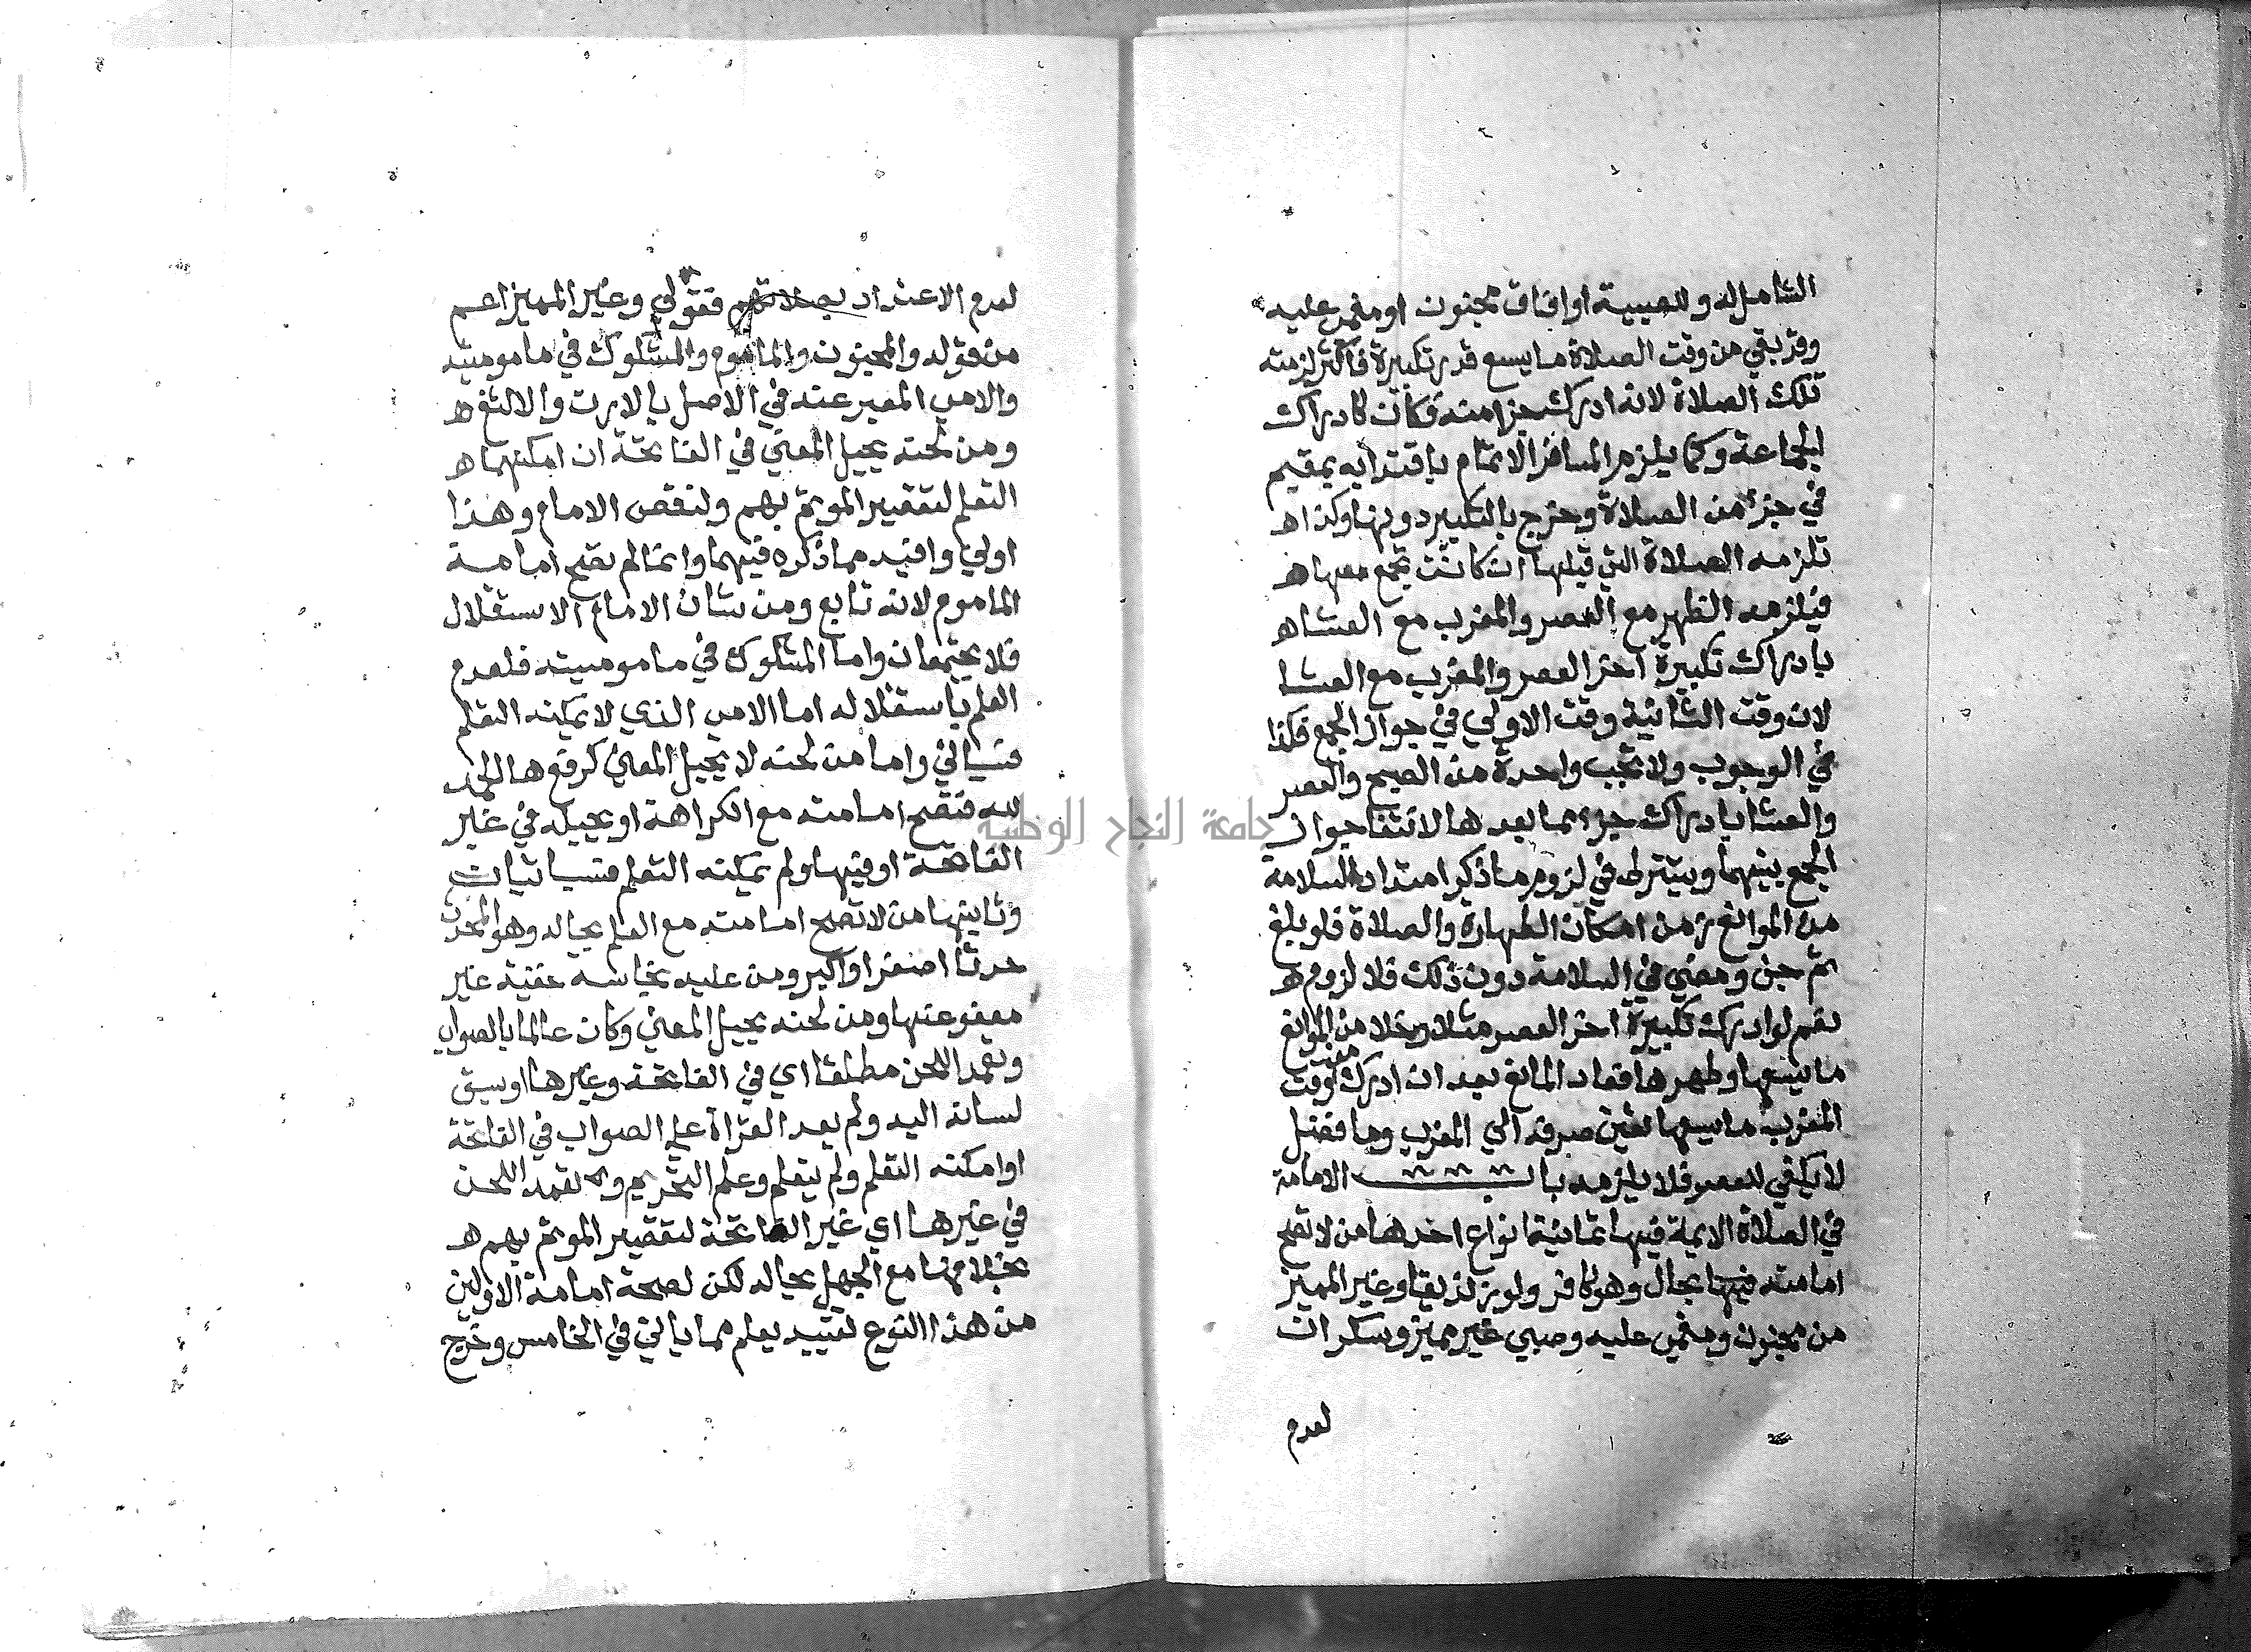 الشامل له وللصبية او افاق مجنون او مغمى عليه
وقد بقي من وقت الصلاة ما يسع قدر تكبيرة فاكثر لزمته
تلك الصلاة لانه ادرك جزا منه فكان كادراك
الجماعة وكما يلزم المسافر الاتمام باقتدايه بمقيم
في جزء من الصلاة وخرج بالتكبير دونها وكذا ه
تلزمه الصلاة التي قبلها ان كانت تجمع معها ه
فيلزمه الظهر مع العصر والمغرب مع العشا ه
بادراك تكبيرة اخر العصر والمغرب مع العشا
لان وقت الثانية وقت الاولي في جواز الجمع فكذا
في الوجوب ولا تجب واحدة من الصبح والعصر
والعشا بادراك جزء مما بعدها لانتفا جواز
الجمع بينهما ويشترط في لزوم ما ذكر امتداد السلامة
من الموانع زمن امكان الطهارة والصلاة فلو بلغ
ثم جن ومضي في السلامة دون ذلك فلا لزوم ه
نعم لو ادرك تكبيرة اخر العصر مثلا وخلا من الموانع
ما يسعها وطهرها فعاد المانع بعد ان ادرك من وقت
المغرب ما يسعها تعين صرفه الي المغرب وما فضل
لا يكفي للعصر فلا يلزمه باب الامامة
في الصلاة الايمة فيها ثمانية انواع احدها من لا تصح
امامته فيها بحال وهو كافر ولو زنديقا وغير المميز
من مجنون ومغمى عليه وصبي غير مميز وسكران
لعدم
لعدم الاعتداد بصلاتهم فقولي وغير المميز اعم
من قوله والمجنون والماموم والمشكوك في ماموميته
والامي المعبر عنه في الاصل بالارت والالثغ ه
ومن لحنه يحيل المعني في الفاتحة ان امكنهما ه
التعلم لتقصير الموتم بهم ولنقص الامام وهذا
اولي وافيد مما ذكره فيهما وانما لم تصح امامة
الماموم لانه تابع ومن شان الامام الاستقلال
فلا يجتمعان واما المشكوك في ماموميته فلعدم
العلم باستقلاله اما الامي الذي لا يمكنه التعلم
فسياتي واما من لحنه لا يحيل المعني كرفع ها الحمد
لله فتصح امامته مع الكراهة او يحيله في غير
الفاتحة او فيها ولم يمكنه التعلم فسياتيان
وثانيها من لا تصح امامته مع العلم بحاله وهو المحدث
حدثا اصغر او اكبر ومن عليه نجاسة خفية غير
معفو عنها ومن لحنه يحيل المعني وكان عالما بالصواب
وتعمد اللحن مطلقا اي في الفاتحة وغيرها او سبق
لسانه اليه ولم يعد القراة علي الصواب في الفاتحة
او امكنه التعلم ولم يتعلم وعلم التحريم وتعمد اللحن
في غيرها اي غير الفاتحة لتقصير الموتم بهم ه
بخلافها مع الجهل بحاله لكن لصحة امامة الاولين
من هذا النوع تقييد يعلم مما ياتي في الخامس وخرج
جامعة النجاح الوطنية